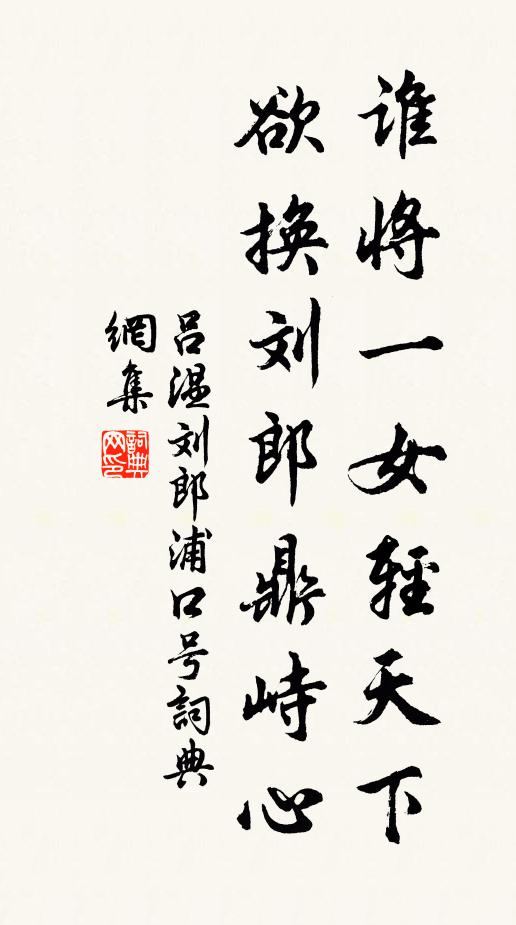 谁将一女轻天下
欲换刘郎鼎峙心
吕温刘郎浦口号詞典
網集
詞典
网印